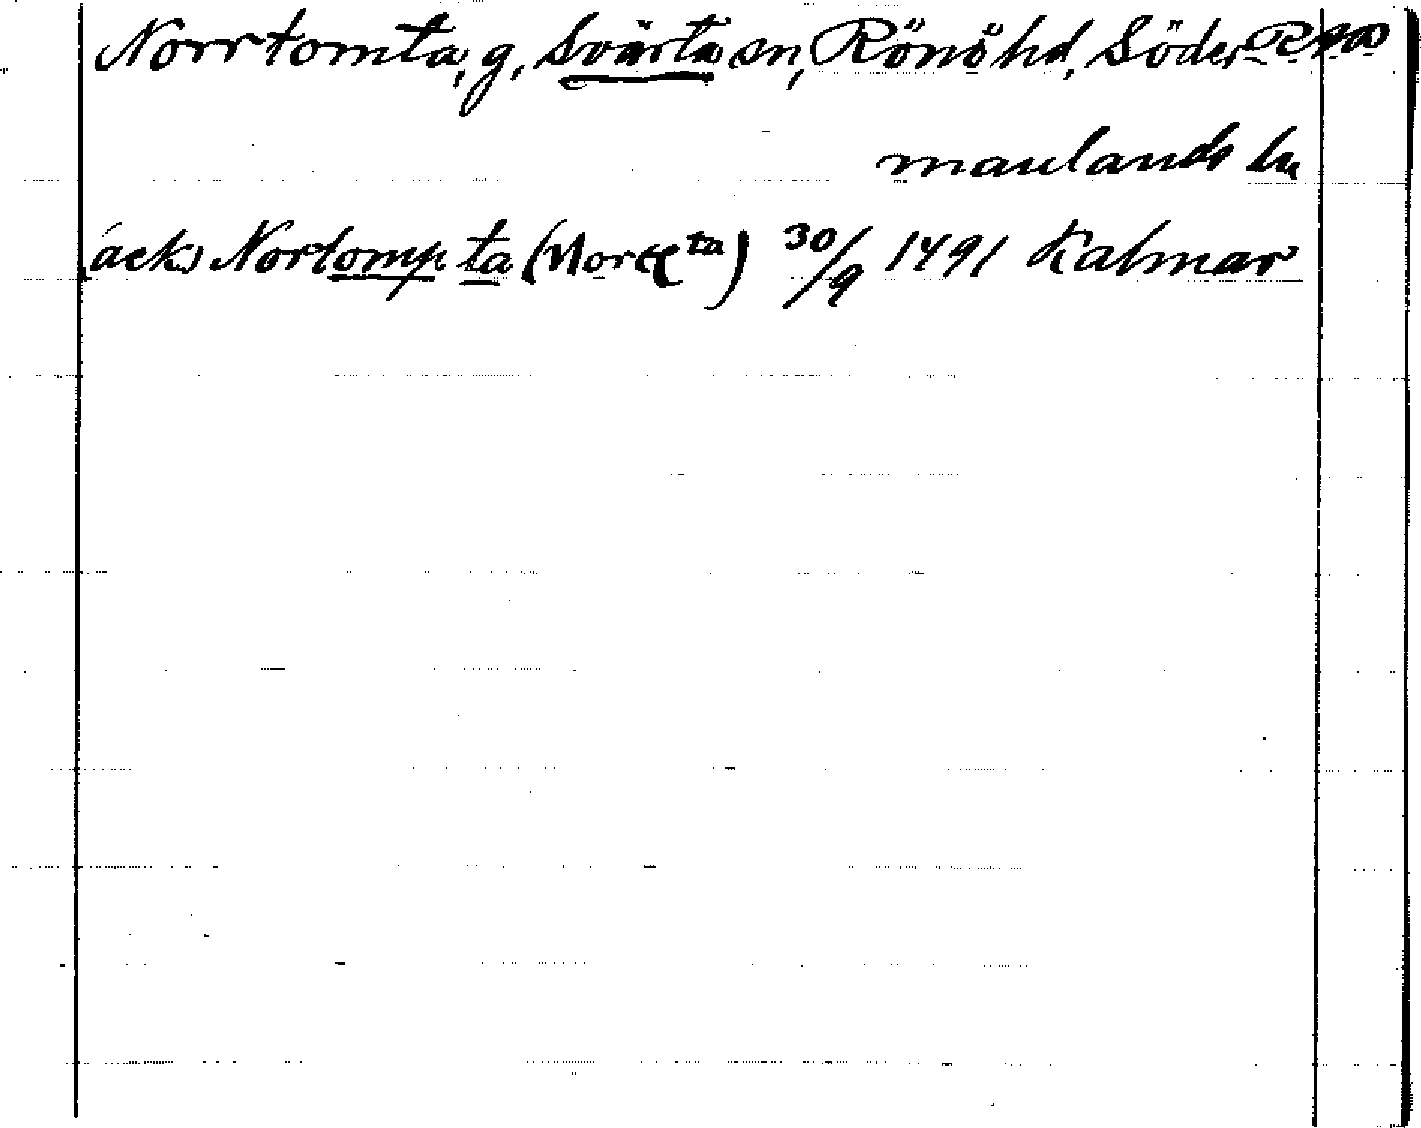 Norrtomta, g, Svärta sn, Rönö hd, Söder
manlands ln
(ack) Nortompta 30/9 1491 Kalmar